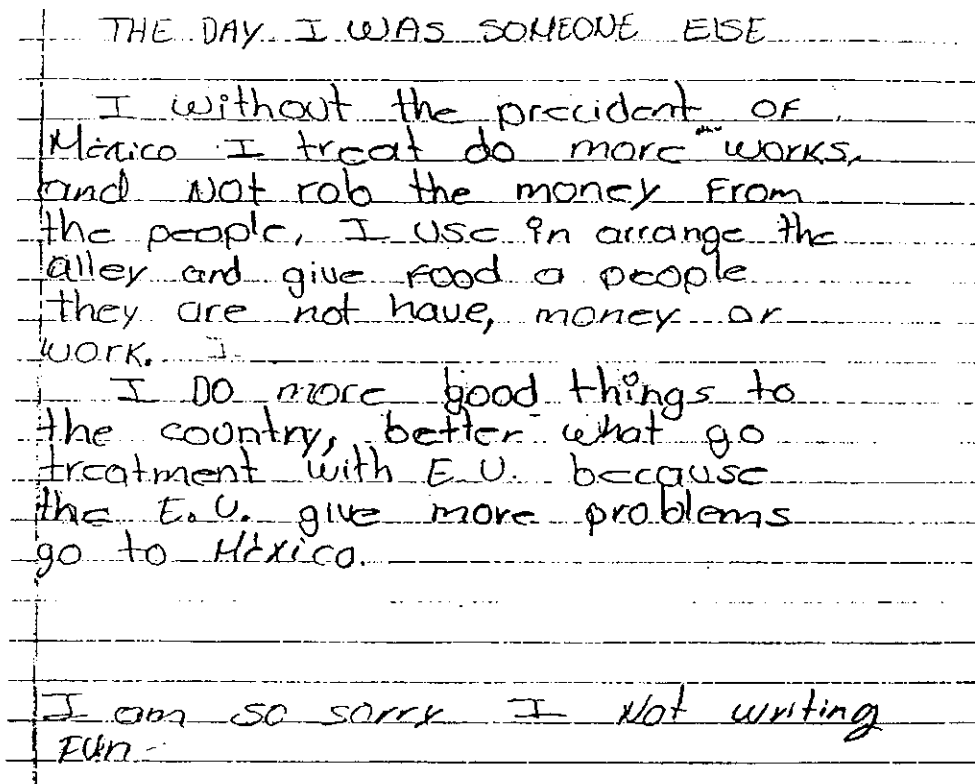 THE DAY I WAS SOMEONE ELSE
I without the precident OF
México I treat do more works,
and Not rob the money From
the people, I use in arrange the
alley and give Food a people
they are not have, money or
work.
I DO more good things to
the country, better what go
treatment with E.U. because
the E.U. give more problems
go to México.
I am so sorry I Not writing
FUN-